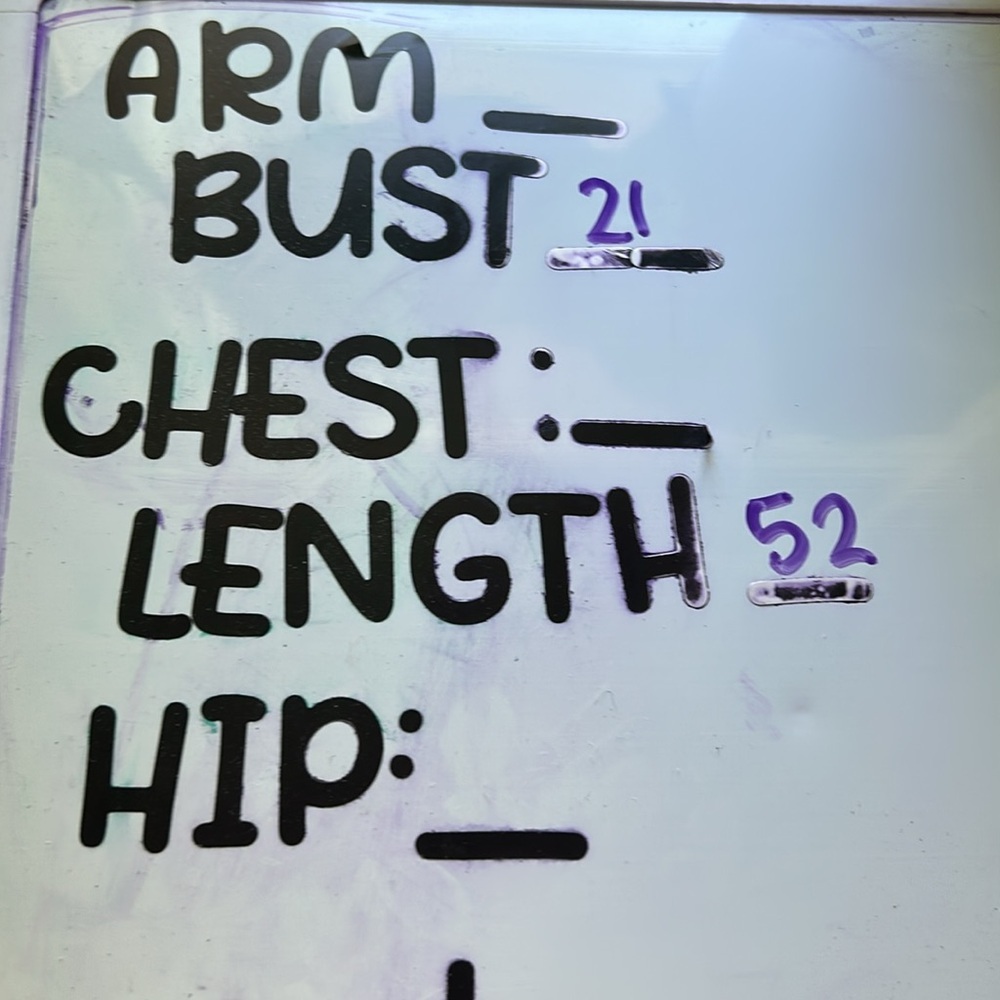 ARM _
BUST 21
CHEST : _
LENGTH 52
HIP: _